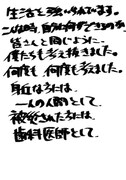 生活を強いられてます。
こんな時、自分に何ができるのか、
皆さんと同じように、
僕たちも考え抜きました。
何度も何度も考えました。
身近な方には、
一人の人間として、
被災された方には、
歯科医師として、